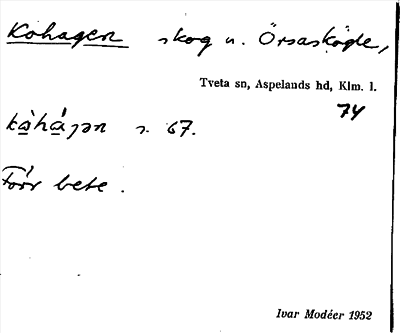 Kohagen skog u. ÖrsasköGle,
Tveta sn, Aspelands hd, Klm. l.
74
kòhájən s. 67.
Förr bete.
Ivar Modéer 1952